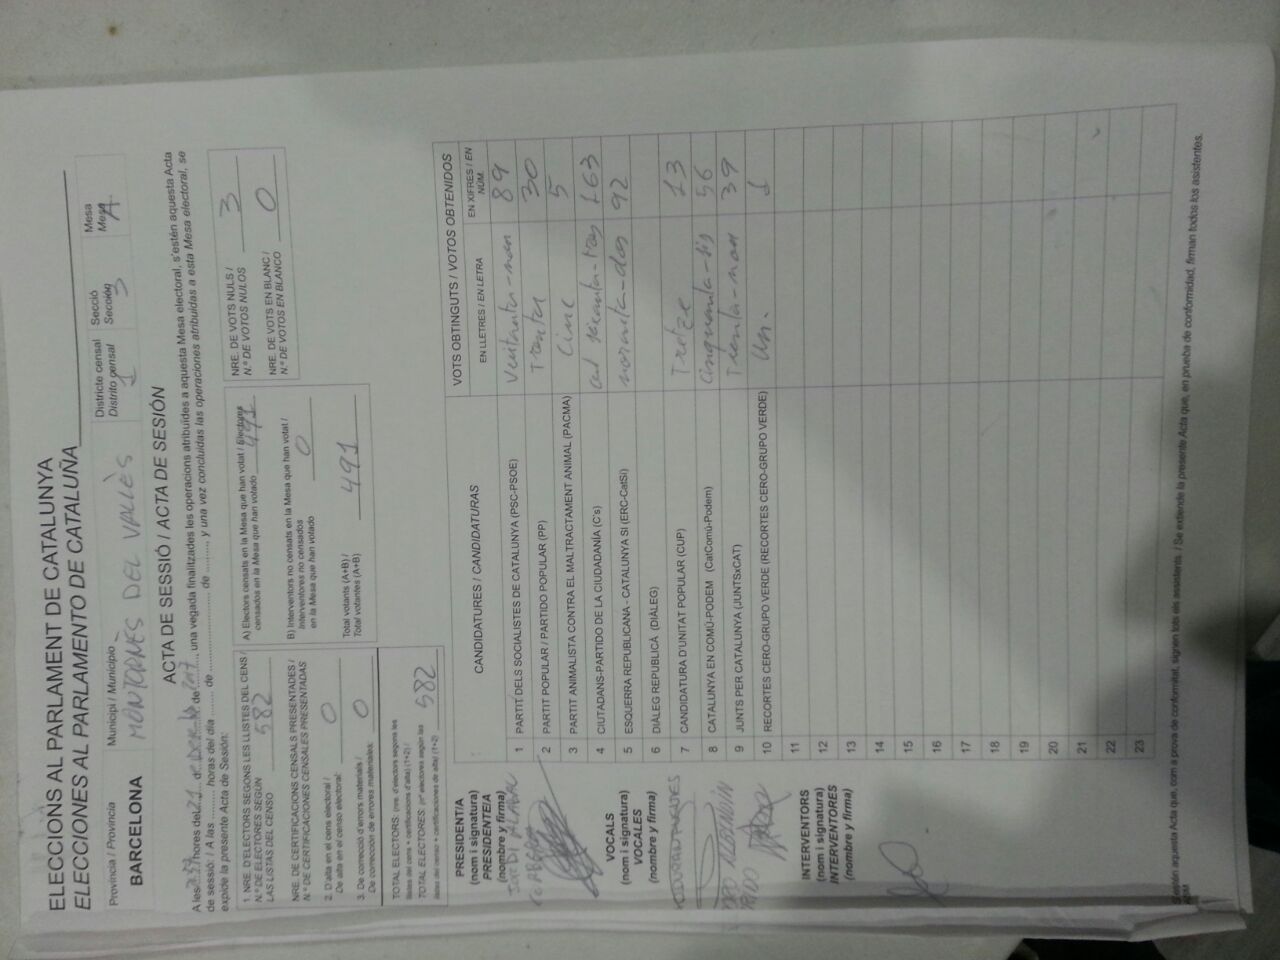 ELECCIONS AL PARLAMENT DE CATALUNYA
ELECCIONES AL PARLAMENTO DE CATALUÑA
Província / Provincia
BARCELONA
Municipi / Municipio
MONTORNÈS DEL VALLÈS
Districte censal
Distrito censal
1
Secció
Sección
3
Mesa
Mesa
A
ACTA DE SESSIÓ / ACTA DE SESIÓN
A les hores del 21 d de una vegada finalitzades les operacions atribuïdes a aquesta Mesa electoral, s'estén aquesta Acta
de sessió / A las ......... horas del día ......... de ......... de ........., y una vez concluidas las operaciones atribuidas a esta Mesa electoral, se
expide la presente Acta de Sesión:
1. NRE. D'ELECTORS SEGONS LES LLISTES DEL CENS /
N.º DE ELECTORES SEGÚN
LAS LISTAS DEL CENSO 582
NRE. DE CERTIFICACIONS CENSALS PRESENTADES /
N.º DE CERTIFICACIONES CENSALES PRESENTADAS
2. D'alta en el cens electoral /
De alta en el censo electoral: 0
3. De correcció d'errors materials /
De corrección de errores materiales: 0
TOTAL ELECTORS: (nre. d'electors segons les
llistes del cens + certificacions d'alta) (1+2) /
TOTAL ELECTORES: (nº electores según las
listas del censo + certificaciones de alta) (1+2) 582
A) Electors censats en la Mesa que han votat / Electores
censados en la Mesa que han votado 491
B) Interventors no censats en la Mesa que han votat /
Interventores no censados
en la Mesa que han votado 0
Total votants (A+B) /
Total votantes (A+B) 491
NRE. DE VOTS NULS /
N.º DE VOTOS NULOS 3
NRE. DE VOTS EN BLANC /
N.º DE VOTOS EN BLANCO 0
CANDIDATURES / CANDIDATURAS
VOTS OBTINGUTS / VOTOS OBTENIDOS
EN LLETRES / EN LETRA
EN XIFRES / EN NÚM.
1 PARTIT DELS SOCIALISTES DE CATALUNYA (PSC-PSOE) Vuitanta-nou 89
2 PARTIT POPULAR / PARTIDO POPULAR (PP) Trenta 30
3 PARTIT ANIMALISTA CONTRA EL MALTRACTAMENT ANIMAL (PACMA) Cinc 5
4 CIUTADANS-PARTIDO DE LA CIUDADANÍA (C's) 163
5 ESQUERRA REPUBLICANA - CATALUNYA SÍ (ERC-CatSí) noranta-dos 92
6 DIÀLEG REPUBLICÀ (DIÀLEG)
7 CANDIDATURA D'UNITAT POPULAR (CUP) Tretze 13
8 CATALUNYA EN COMÚ-PODEM (CatComú-Podem) Cinquanta-sis 56
9 JUNTS PER CATALUNYA (JUNTSxCAT) Trenta-nou 39
10 RECORTES CERO-GRUPO VERDE (RECORTES CERO-GRUPO VERDE) Un. 1
11
12
13
14
15
16
17
18
19
20
21
22
23
PRESIDENT/A
(nom i signatura)
PRESIDENTE/A
(nombre y firma)
VOCALS
(nom i signatura)
VOCALES
(nombre y firma)
INTERVENTORS
(nom i signatura)
INTERVENTORES
(nombre y firma)
S'estén aquesta Acta que, com a prova de conformitat, signen tots els assistents. / Se extiende la presente Acta que, en prueba de conformidad, firman todos los asistentes.